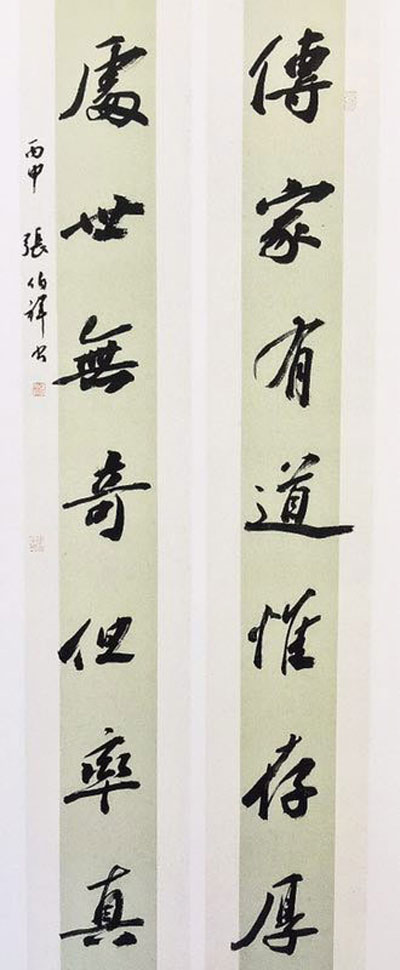 傳家有道惟存厚
處世無奇但率真
丙申 張伯祥書